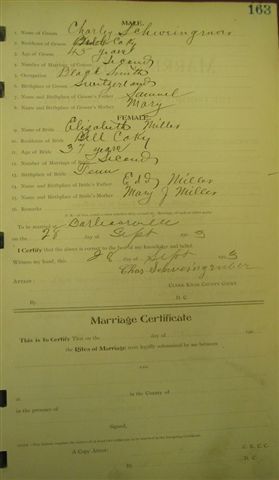 163
MALE.
1. Name of Groom Charley Schweingruber
2. Residence of Groom Bell Co Ky
3. Age of Groom 45 years
4. Number of Marriage of Groom Second
5. Occupation Black Smith
6. Birthplace of Groom Switzerland
7. Name and Birthplace of Groom's Father Samuel
8. Name and Birthplace of Groom's Mother Mary
FEMALE.
9. Name of Bride Elizabeth Miller
10. Residence of Bride Bell Co Ky
11. Age of Bride 37 years
12. Number of Marriage of Bride Second
13. Birthplace of Bride Tenn
14. Name and Birthplace of Bride's Father Ed Miller
15. Name and Birthplace of Bride's Mother Mary J Miller
16. Remarks
To be married at Barbourville
on the 28 day of Sept 3
I Certify that the above is correct to the best of my knowledge and belief.
Witness my hand, this 28 day of Sept 3
Chas Schweingruber
CLERK KNOX COUNTY COURT
By D. C.
Marriage Certificate
This is to Certify That on the day of
the Rites of Marriage were legally solemnized by me between
and
at in the County of
in the presence of
Signed,
A Copy Attest: C. K. C. C.
By D. C.